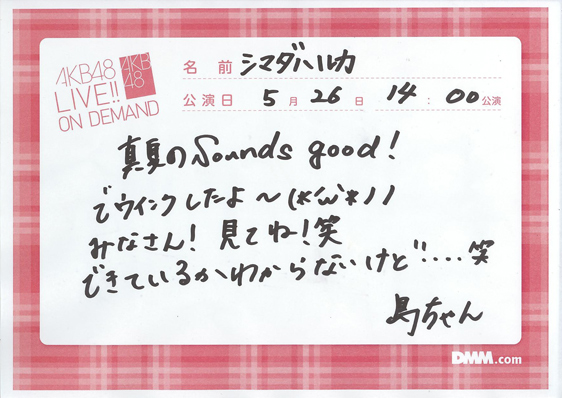 AKB48
LIVE!!
ON DEMAND
AKB
48
名前 シマダハルカ
公演日 5月26日 14:00公演
真夏のSounds good!
でウインクしたよ〜(*´ω`*)ノ
みなさん!見てね!笑
できているかわからないけど....笑
島ちゃん
DMM.com